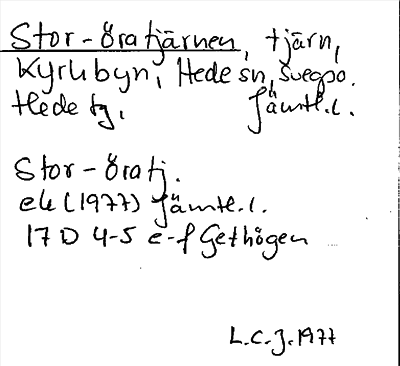 Stor-Öratjärnen, tjärn,
Kyrkbyn, Hede sn, Svegpo.
Hede tg. Jämtl.l.
Stor-Öratj.
ek (1977) Jämtl.l.
17 D 4-5 e-f Gethögen
L.C.J. 1977